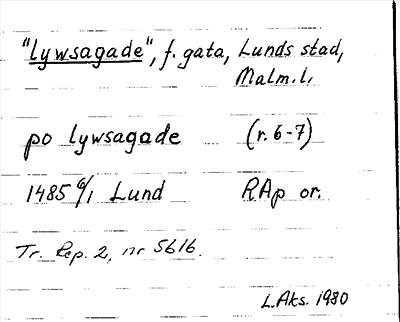 "lywsagade", f. gata, Lunds stad,
Malm.l.
po lywsagade (r. 6-7)
1485 6/1 Lund RAp or.
Tr. Rep. 2, nr 5616.
L.Aks. 1980